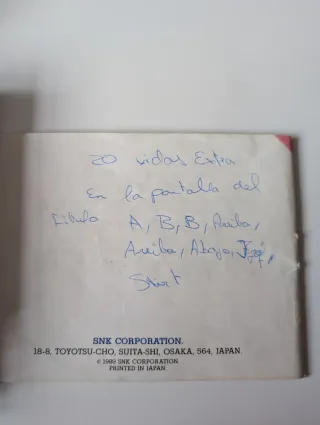 20 vidas Extra
En la pantalla del
título A, B, B, Arriba,
Arriba, Abajo,
Start
SNK CORPORATION.
18-8, TOYOTSU-CHO, SUITA-SHI, OSAKA, 564, JAPAN.
© 1989 SNK CORPORATION
PRINTED IN JAPAN